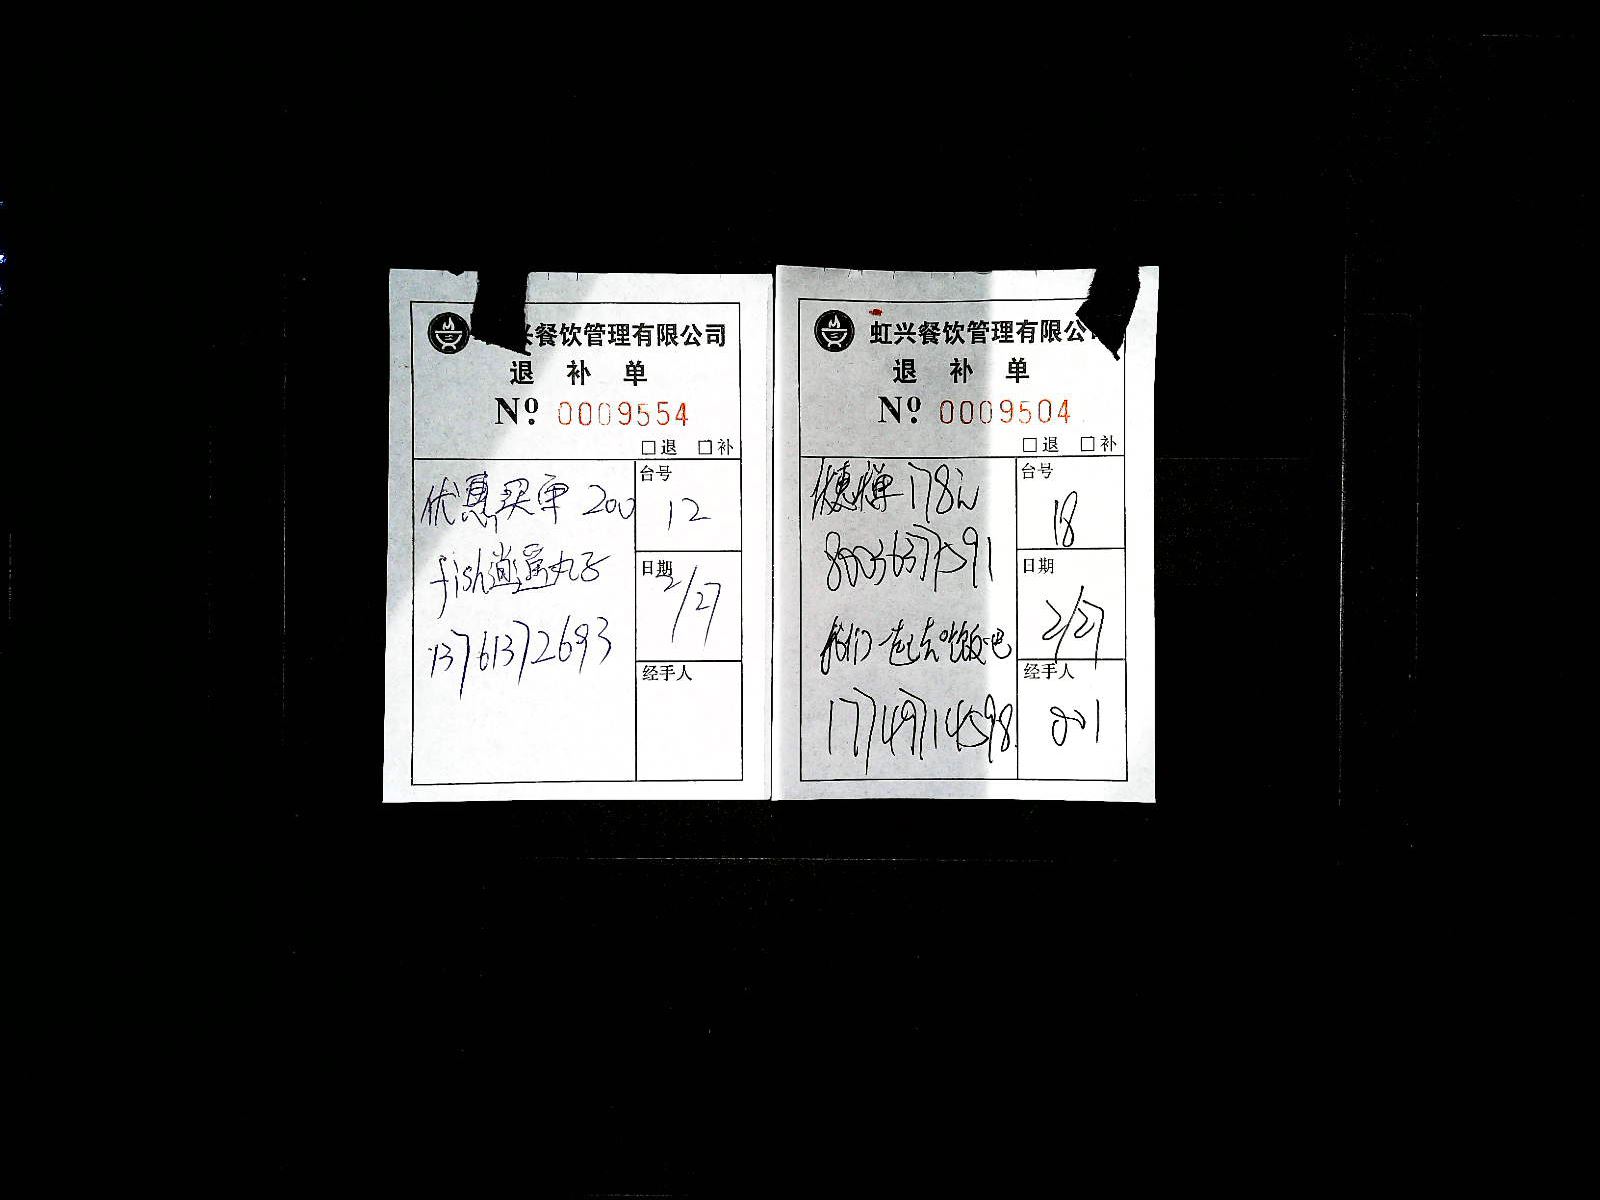 兴餐饮管理有限公司
退 补 单
Nº 0009554
退 补
优惠买单 200
台号
12
fish逍遥丸子
日期
2/27
13761372693
经手人
虹兴餐饮管理有限公
退 补 单
Nº 0009504
退 补
优惠买单 178元
台号
18
日期
2/27
我们一起去吃饭吧
经手人
17749714598
001